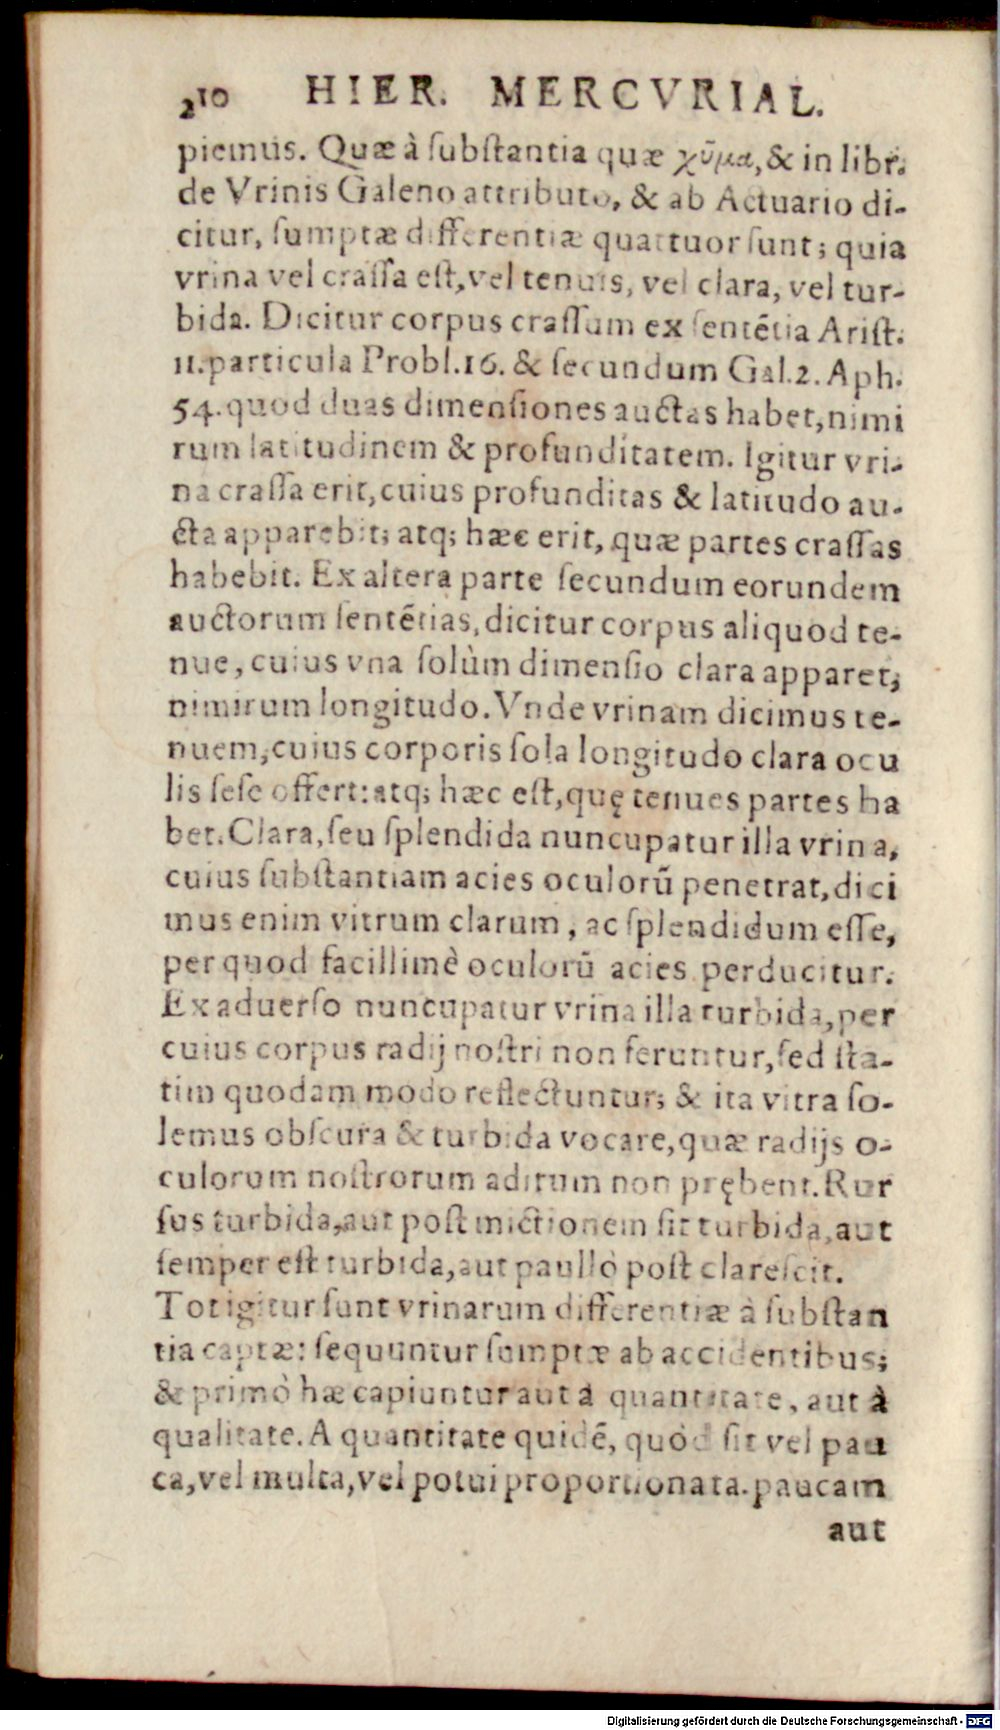 210 HIER. MERCVRIAL.
piemus. Quæ à ſubſtantia quæ χῦμα, & in libr.
de Vrinis Galeno attributo, & ab Actuario di-
citur, ſumptæ differentiæ quattuor ſunt; quia
vrina vel craſſa eſt, vel tenuis, vel clara, vel tur-
bida. Dicitur corpus craſſum ex ſentẽtia Ariſt.
11. particula Probl. 16. & ſecundum Gal. 2. Aph.
54. quod duas dimenſiones auctas habet, nimi
rum latitudinem & profunditatem. Igitur vri-
na craſſa erit, cuius profunditas & latitudo au-
cta apparebit; atq; hæc erit, quæ partes craſſas
habebit. Ex altera parte ſecundum eorundem
auctorum ſentẽtias, dicitur corpus aliquod te-
nue, cuius vna ſolùm dimenſio clara apparet;
nimirum longitudo. Vnde vrinam dicimus te-
nuem, cuius corporis ſola longitudo clara ocu
lis ſeſe offert: atq; hæc eſt, quę tenues partes ha
bet. Clara, ſeu ſplendida nuncupatur illa vrina,
cuius ſubſtantiam acies oculorũ penetrat, dici
mus enim vitrum clarum, ac ſplendidum eſſe,
per quod facillimè oculorũ acies perducitur.
Ex aduerſo nuncupatur vrina illa turbida, per
cuius corpus radij noſtri non feruntur, ſed ſta-
tim quodam modo reflectuntur; & ita vitra ſo-
lemus obſcura & turbida vocare, quæ radijs o-
culorum noſtrorum aditum non prębent. Rur
ſus turbida, aut poſt mictionem fit turbida, aut
ſemper eſt turbida, aut paullò poſt clareſcit.
Tot igitur ſunt vrinarum differentiæ à ſubſtan
tia captæ: ſequuntur ſumptæ ab accidentibus;
& primò hæ capiuntur aut à quantitate, aut à
qualitate. A quantitate quidẽ, quòd ſit vel pau
ca, vel multa, vel potui proportionata. paucam
aut
Digitalisierung gefördert durch die Deutsche Forschungsgemeinschaft - DFG